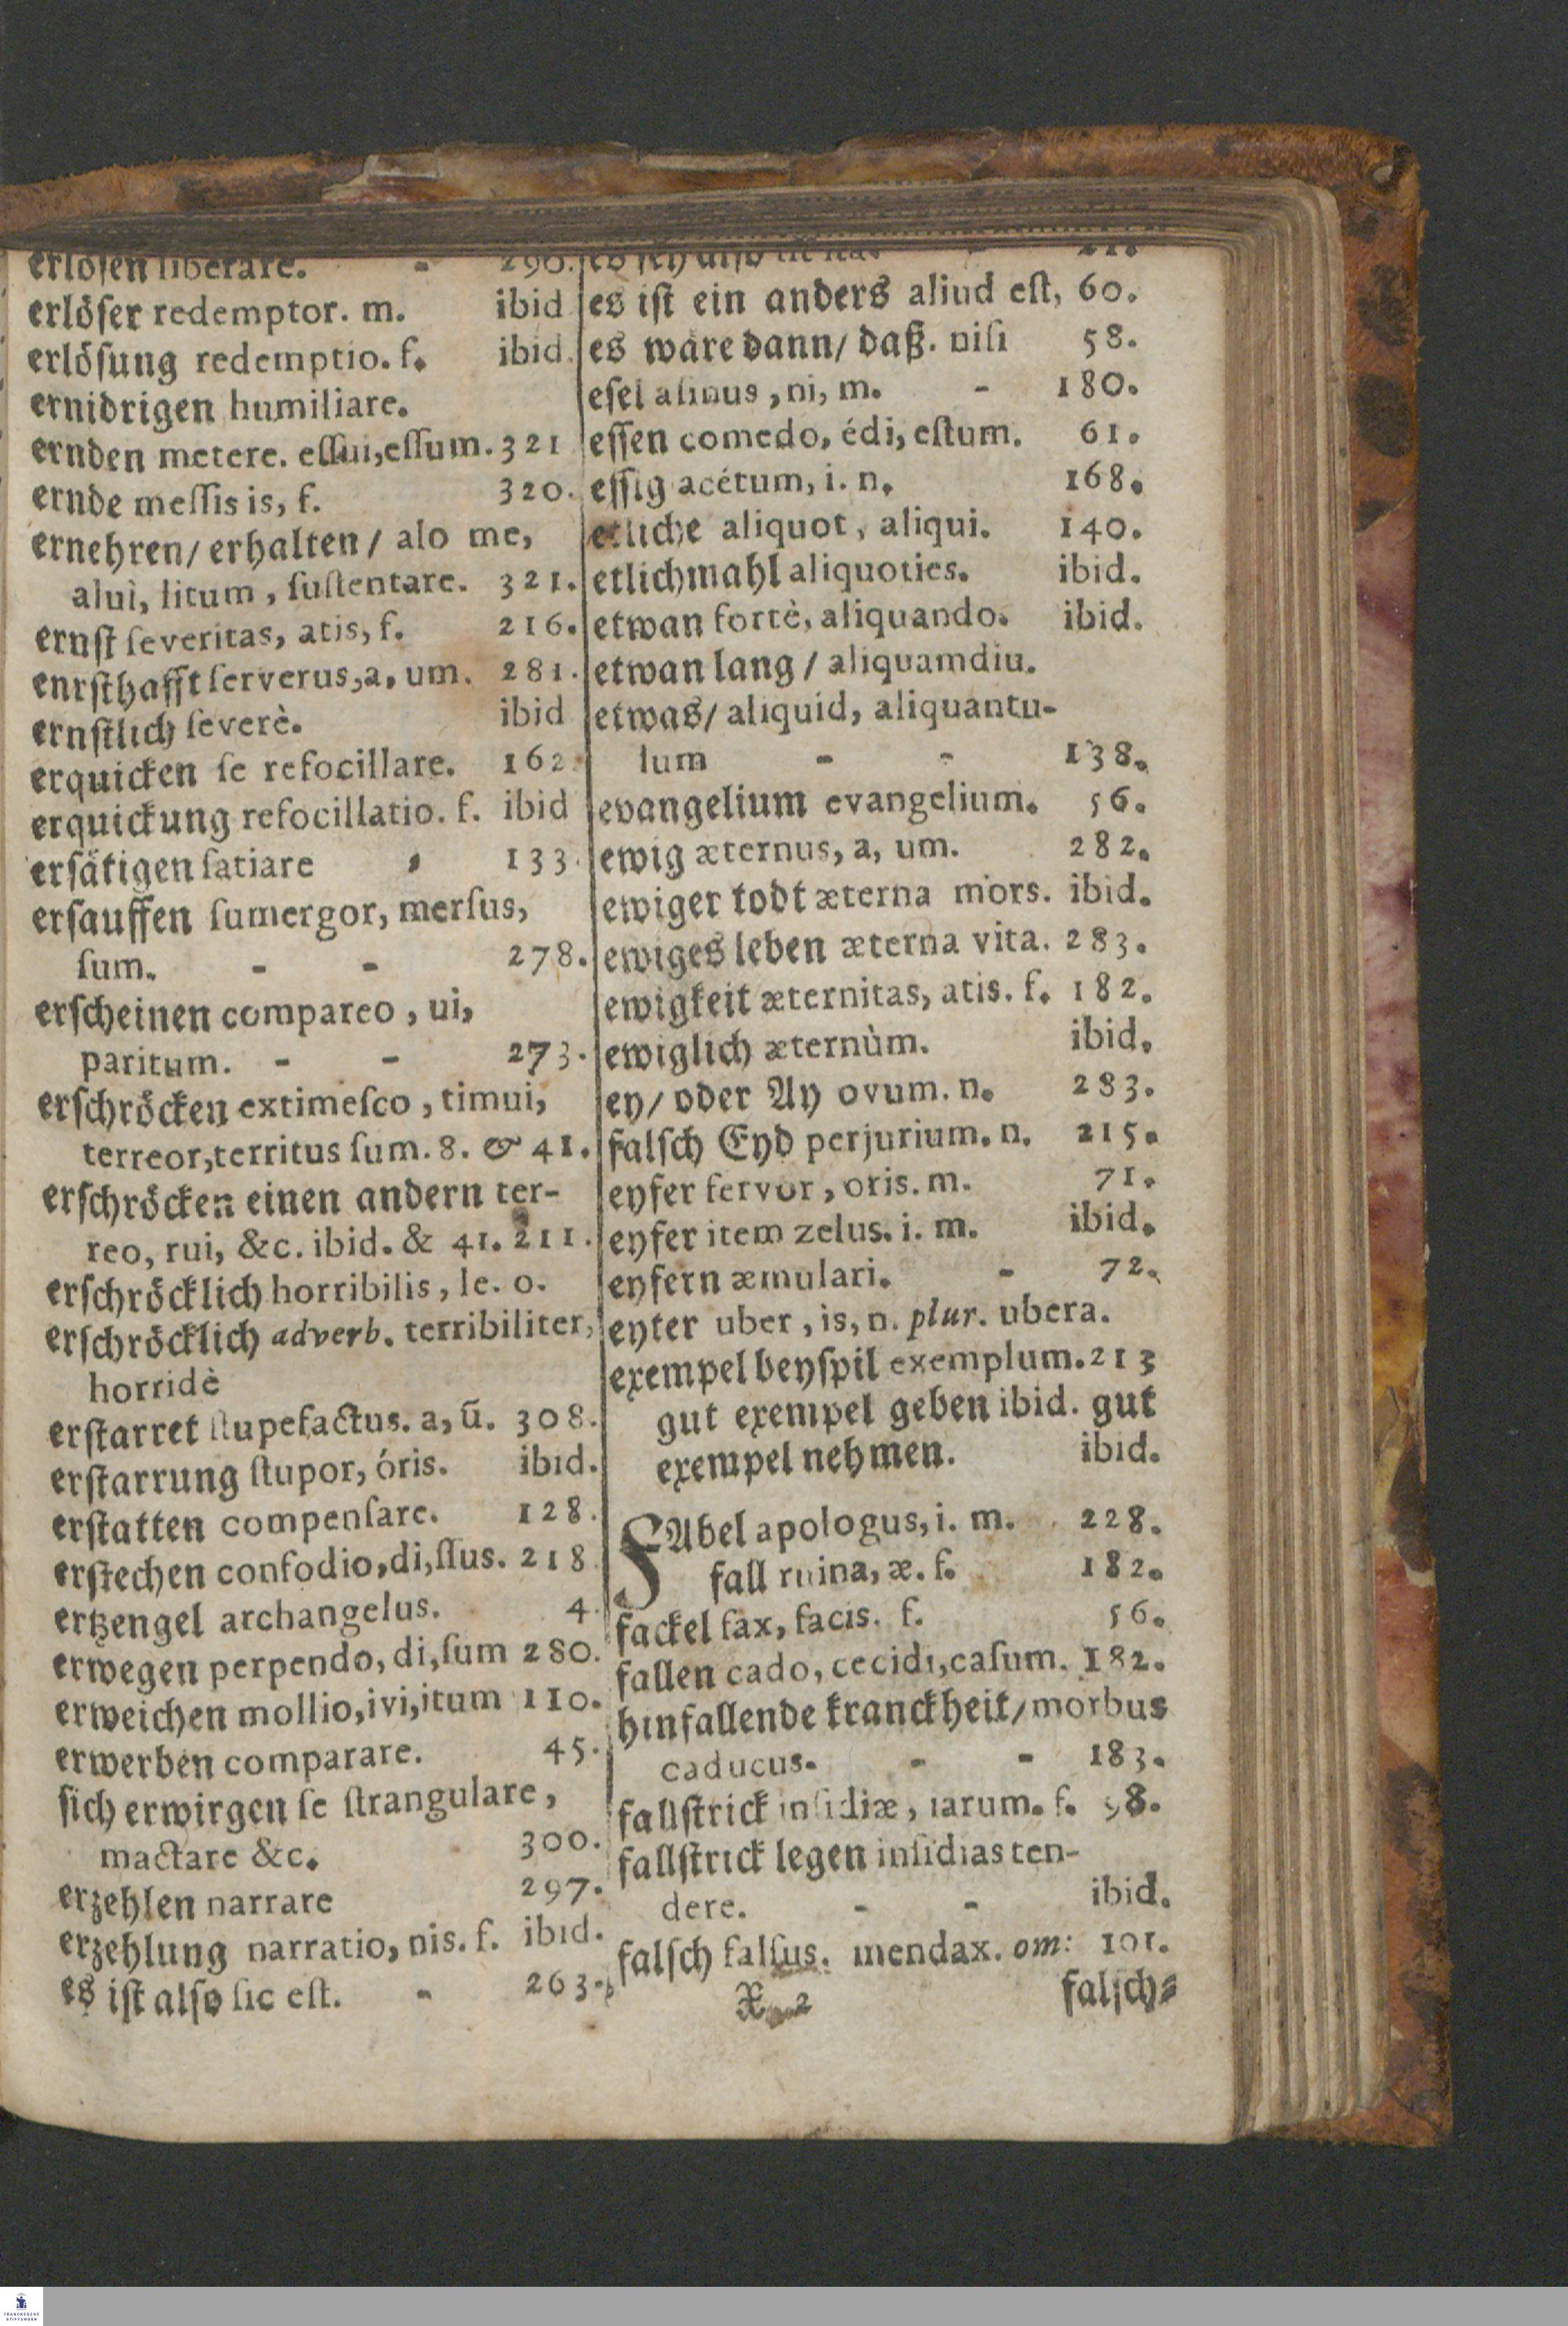 erlösen liberare. - 290.
erlöser redemptor. m. ibid
erlösung redemptio. f. ibid.
ernidrigen humiliare.
ernden metere. eſſui,eſſum. 321
ernde meſſis is, f. 320.
ernehren/ erhalten / alo me,
aluì, litum, ſuſtentare. 321.
ernſt ſeveritas, atis, f. 216.
enrſthafft ſerverus,a, um. 281.
ernſtlich ſeverè. ibid
erquicken ſe refocillare. 162.
erquickung refocillatio. f. ibid
erſätigen ſatiare 133.
erſauffen ſumergor, merſus,
ſum. - - 278.
erſcheinen compareo, ui,
paritum. - - 273.
erſchröcken extimeſco, timui,
terreor,territus ſum. 8. & 41.
erſchröcken einen andern ter-
reo, rui, &c. ibid. & 41. 211.
erſchröcklich horribilis, le. o.
erſchröcklich adverb. terribiliter,
horridè
erſtarret ſtupefactus. a, ũ. 308.
erſtarrung ſtupor, óris. ibid.
erſtatten compenſare. 128.
erſtechen confodio,di,ſſus. 218
ertzengel archangelus. 4.
erwegen perpendo, di,ſum 280.
erweichen mollio,ivi,itum 110.
erwerben comparare. 45.
ſich erwirgen ſe ſtrangulare,
mactare &c. 300.
erzehlen narrare 297.
erzehlung narratio, nis. f. ibid.
es iſt alſo ſic eſt. - 263.
es iſt ein anders aliud eſt, 60.
es wäre dann/ daß. niſi 58.
eſel aſinus, ni, m. - 180.
eſſen comedo, édi, eſtum. 61.
eſſig acétum, i. n. 168.
etliche aliquot, aliqui. 140.
etlichmahl aliquoties. ibid.
etwan fortè, aliquando. ibid.
etwan lang / aliquamdiu.
etwas/ aliquid, aliquantu-
lum - - 138.
evangelium evangelium. 56.
ewig æternus, a, um. 282.
ewiger todt æterna mors. ibid.
ewiges leben æterna vita. 283.
ewigkeit æternitas, atis. f. 182.
ewiglich æternùm. ibid.
ey/ oder Ay ovum. n. 283.
falſch Eyd perjurium. n. 215.
eyfer fervor, oris. m. 71.
eyfer item zelus. i. m. ibid.
eyfern æmulari. - 72.
eyter uber, is, n. plur. ubera.
exempel beyſpil exemplum. 213
gut exempel geben ibid. gut
exempel nehmen. ibid.
FAbel apologus, i. m. 228.
fall ruina, æ. f. 182.
fackel fax, facis. f. 56.
fallen cado, cecidi,caſum. 182.
hinfallende kranckheit/ morbus
caducus. - - 183.
fallſtrick inſidiæ, iarum. f. 98.
fallſtrick legen inſidias ten-
dere. - - ibid.
falſch falſus. mendax. om: 101.
X 2 falſch⸗
FRANCKESCHE
STIFTUNGEN